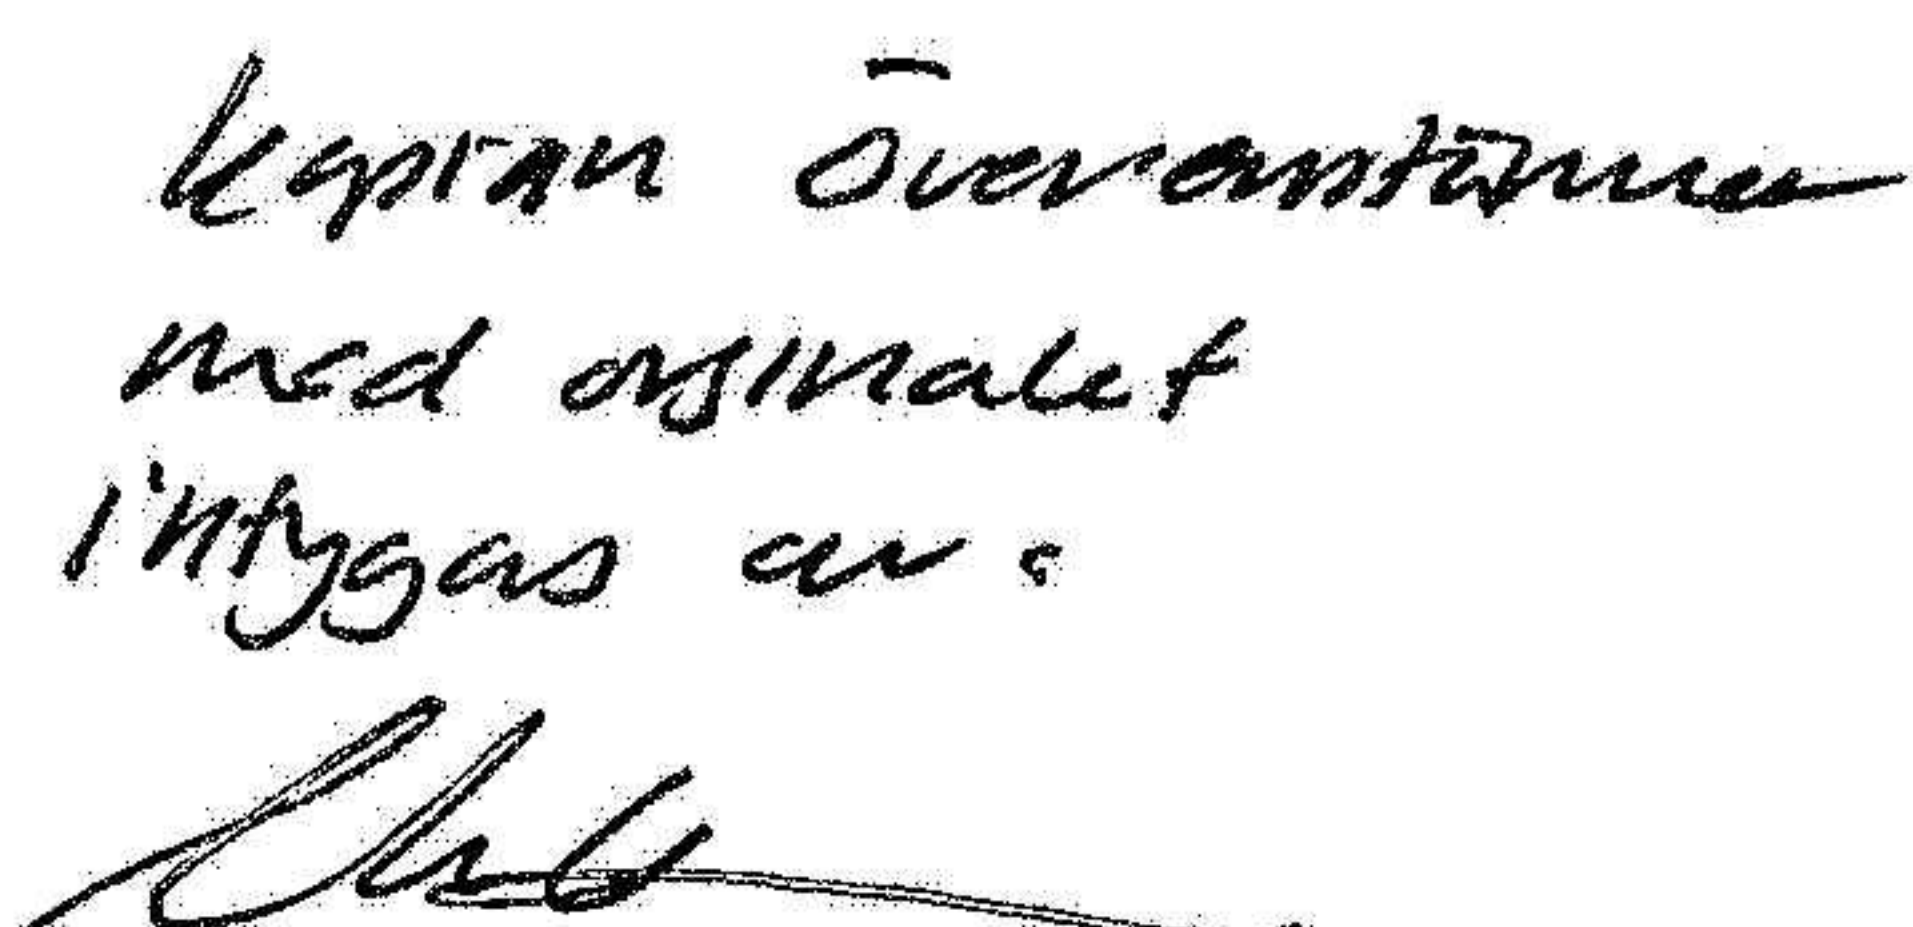 kopian överenstämmer
med orginalet
intygas av: